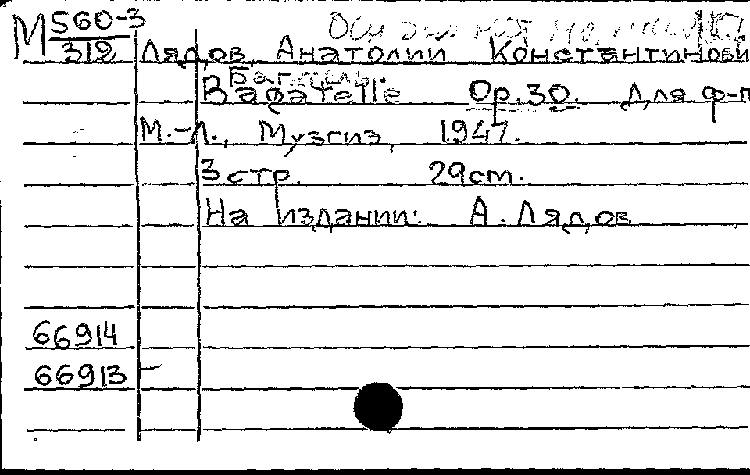 М 560-3
312
Лядов, Анатолий Константинови
Багатель.
Bagatelle Op.30. Для ф-п
М.-Л., Музгиз, 1947.
3 стр. 29 см.
На издании: А. Лядов
66914
66913 —